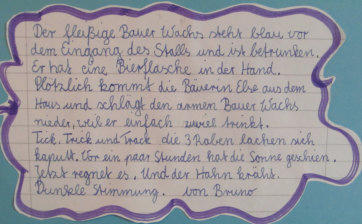 Der fleißige Bauer Wachs steht blau vor
dem Eingang des Stalls und ist betrunken.
Er hat eine Bierflasche in der Hand.
Plötzlich kommt die Bäuerin Else aus dem
Haus und schlägt den armen Bauer Wachs
nieder, weil er einfach zuviel trinkt.
Tick, Trick und Track die 3 Raben lachen sich
kaputt. Vor ein paar Stunden hat die Sonne geschien.
Jetzt regnet es. Und der Hahn kräht.
Dunkle Stimmung. von Bruno